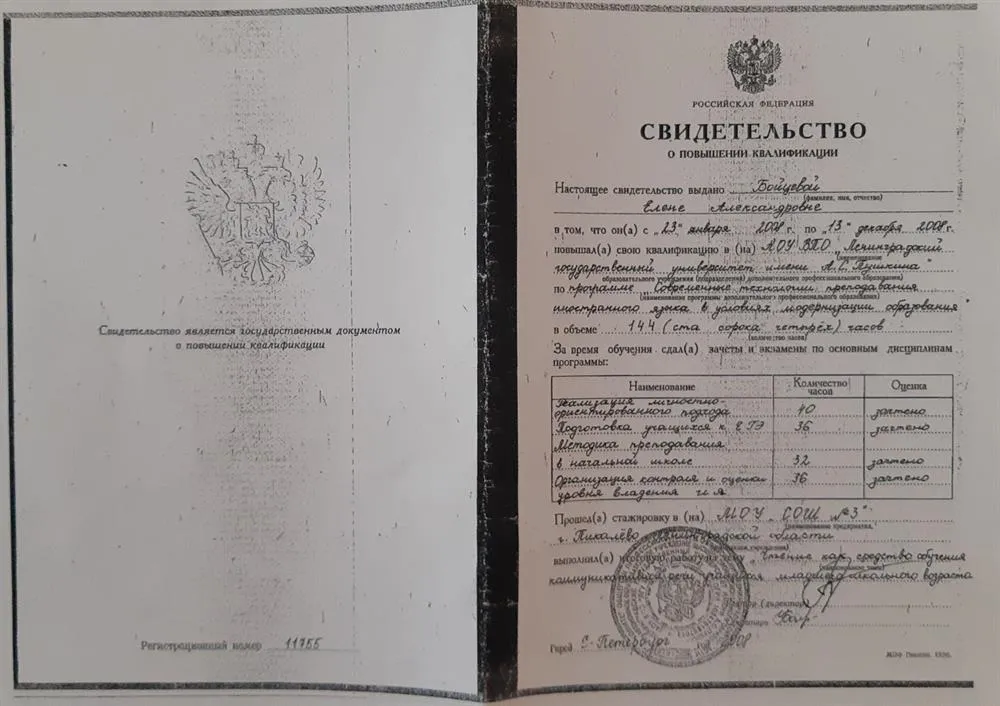 Свидетельство является государственным документом
о повышении квалификации
Регистрационный номер 11755
РОССИЙСКАЯ ФЕДЕРАЦИЯ
СВИДЕТЕЛЬСТВО
О ПОВЫШЕНИИ КВАЛИФИКАЦИИ
Настоящее свидетельство выдано Бойцевой
(фамилия, имя, отчество)
Елене Александровне
в том, что он(а) с „23" января 2008 г. по „13" декабря 2008 г.
повышал(а) свою квалификацию в (на) АОУ ВПО „Ленинградский
(наименование
государственный университет имени А.С. Пушкина"
образовательного учреждения (подразделения) дополнительного профессионального образования)
по программе „Современные технологии преподавания
(наименование программы дополнительного профессионального образования)
иностранного языка в условиях модернизации образования"
в объеме 144 (ста сорока четырёх) часов
(количество часов)
За время обучения сдал(а) зачеты и экзамены по основным дисциплинам
программы:
Наименование Количество часов Оценка
Реализация личностно-
ориентированного подхода 40 зачтено
Подготовка учащихся к ЕГЭ 36 зачтено
Методика преподавания
в начальной школе 32 зачтено
Организация контроля и оценки 36 зачтено
уровня владения и.я.
Прошел(а) стажировку в (на) МОУ СОШ №3"
(наименование предприятия,
г. Пикалёво Ленинградской области
выполнил(а) итоговую работу на тему „Чтение как средство обучения
коммуникативной речи учащихся младшего школьного возраста
(директор)
Город С-Петербург 2008